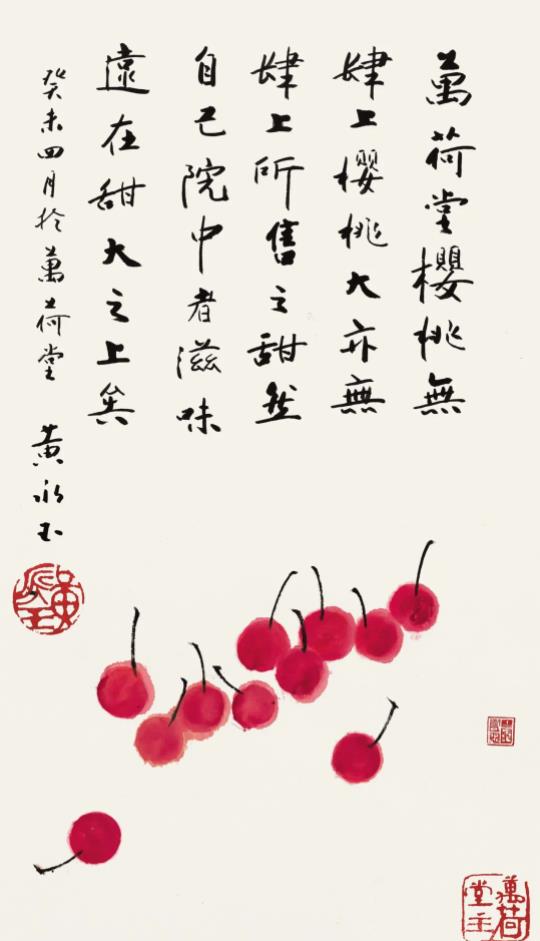 萬荷堂櫻桃無
肆上櫻桃大亦無
肆上所售之甜然
自己院中者滋味
遠在甜大之上矣
癸未四月於萬荷堂
黃永玉
萬荷堂主